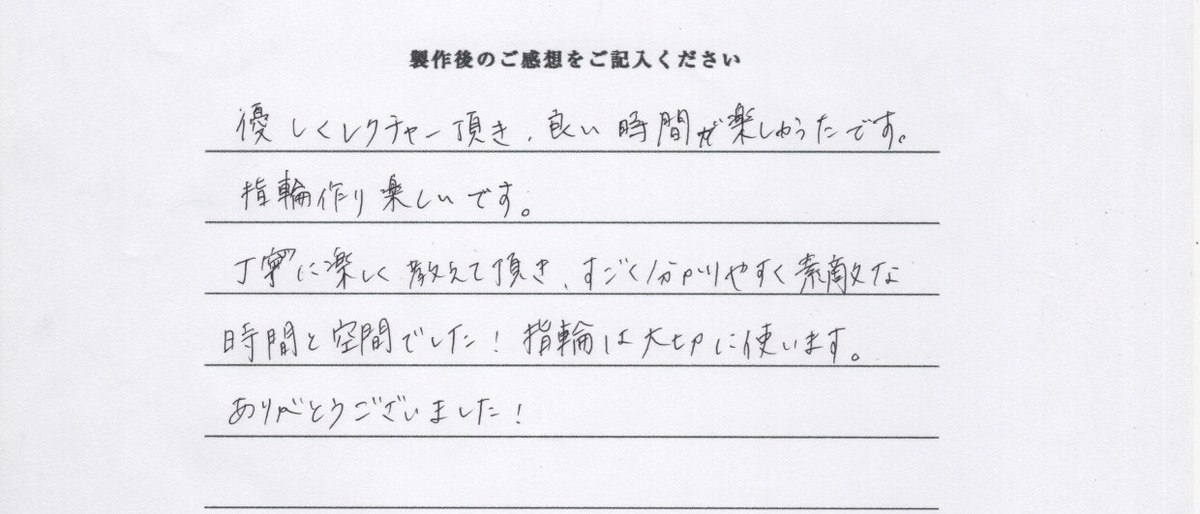 製作後のご感想をご記入ください
優しくレクチャー頂き、良い時間が楽しかったです。
指輪作り楽しいです。
丁寧に楽しく教えて頂き、すごく分かりやすく素敵な
時間と空間でした！指輪は大切に使います。
ありがとうございました！